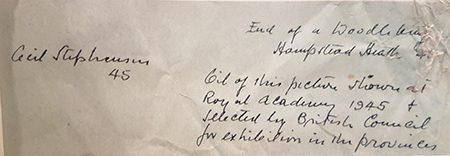 End of a Woodland
Hampstead Heath
Cecil Stephenson
45
Oil of this picture shown at
Royal Academy 1945 &
selected by British Council
for exhibition in the provinces